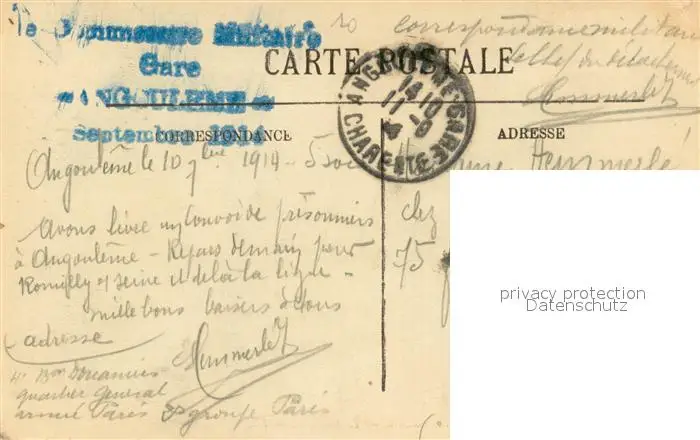 Le Commissaire Militaire
Gare
ANGOULEME
Septembre 1914
correspondance militaire
le chef du détachement
Hemmerlé
CARTE POSTALE
ANGOULEME GARE
14 10
11 - 9
CHARENTE
CORRESPONDANCE
ADRESSE
Angoulême le 10 7bre 1914 - 5 soir
Hemmerlé
Avons livré un convoi de prisonniers
chez
à Angoulême - Repars demain pour
75
Romilly s/ Seine et de là la ligne -
mille bons baisers à tous
Hemmerlé
adresse
4e Bon Douaniers
quartier général
armée Paris 3e groupe Paris
privacy protection
Datenschutz